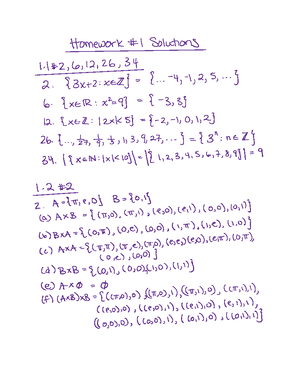 Homework #1 Solutions
1.1 #2, 6, 12, 26, 34
2. {3x+2 : x∈ℤ} = {... -4, -1, 2, 5, ...}
6. {x∈ℝ : x²=9} = {-3, 3}
12. {x∈ℤ : |2x|<5} = {-2, -1, 0, 1, 2}
26. {..., 1/27, 1/9, 1/3, 1, 3, 9, 27, ...} = {3ⁿ : n∈ℤ}
34. |{x∈ℕ : |x|<10}| = |{1, 2, 3, 4, 5, 6, 7, 8, 9}| = 9
1.2 #2
2. A={π, e, 0} B={0,1}
(a) A×B = {(π,0), (π,1), (e,0), (e,1), (0,0), (0,1)}
(b) B×A = {(0,π), (0,e), (0,0), (1,π), (1,e), (1,0)}
(c) A×A = {(π,π), (π,e), (π,0), (e,e), (e,0), (e,π), (0,π),
(0,e), (0,0)}
(d) B×B = {(0,1), (0,0), (1,0), (1,1)}
(e) A×∅ = ∅
(f) (A×B)×B = {((π,0),0), ((π,0),1), ((π,1),0), ((π,1),1),
((e,0),0), ((e,0),1), ((e,1),0), (e,1),1),
((0,0),0), ((0,0),1), ((0,1),0), ((0,1),1)}